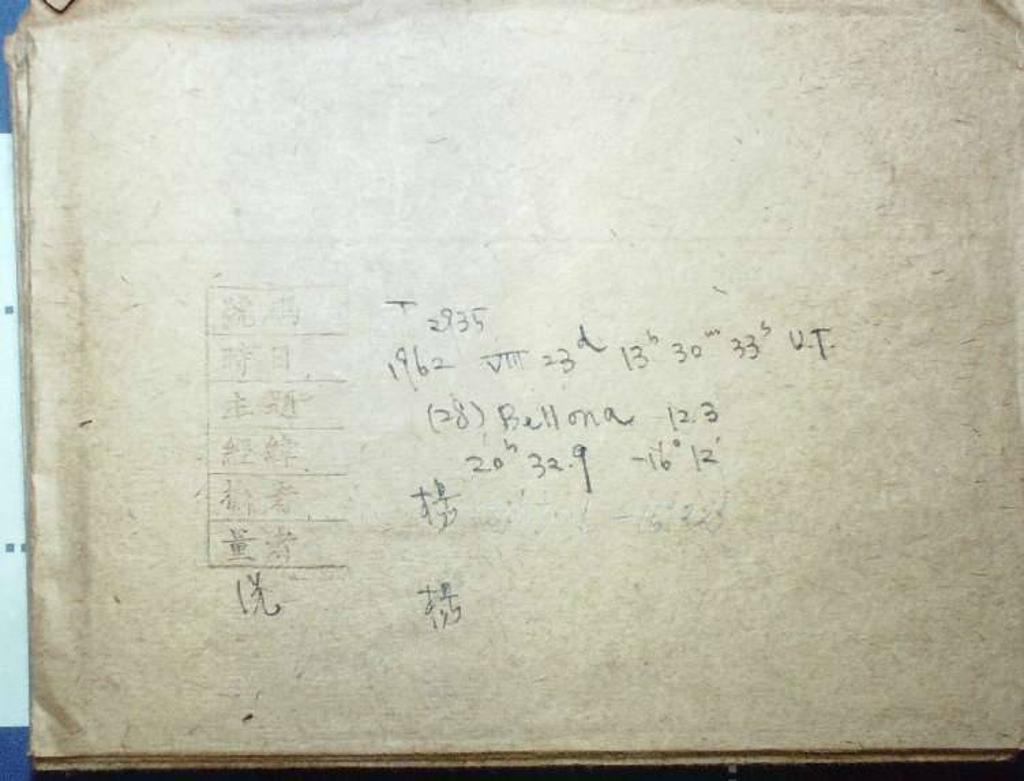 號碼 T 2935
時日 1962 VIII 23d 13h 30m 33s U.T.
主題 (28) Bellona 12.3
經緯 20h 32.9 -16° 12'
攝者 楊
量者
洗 楊